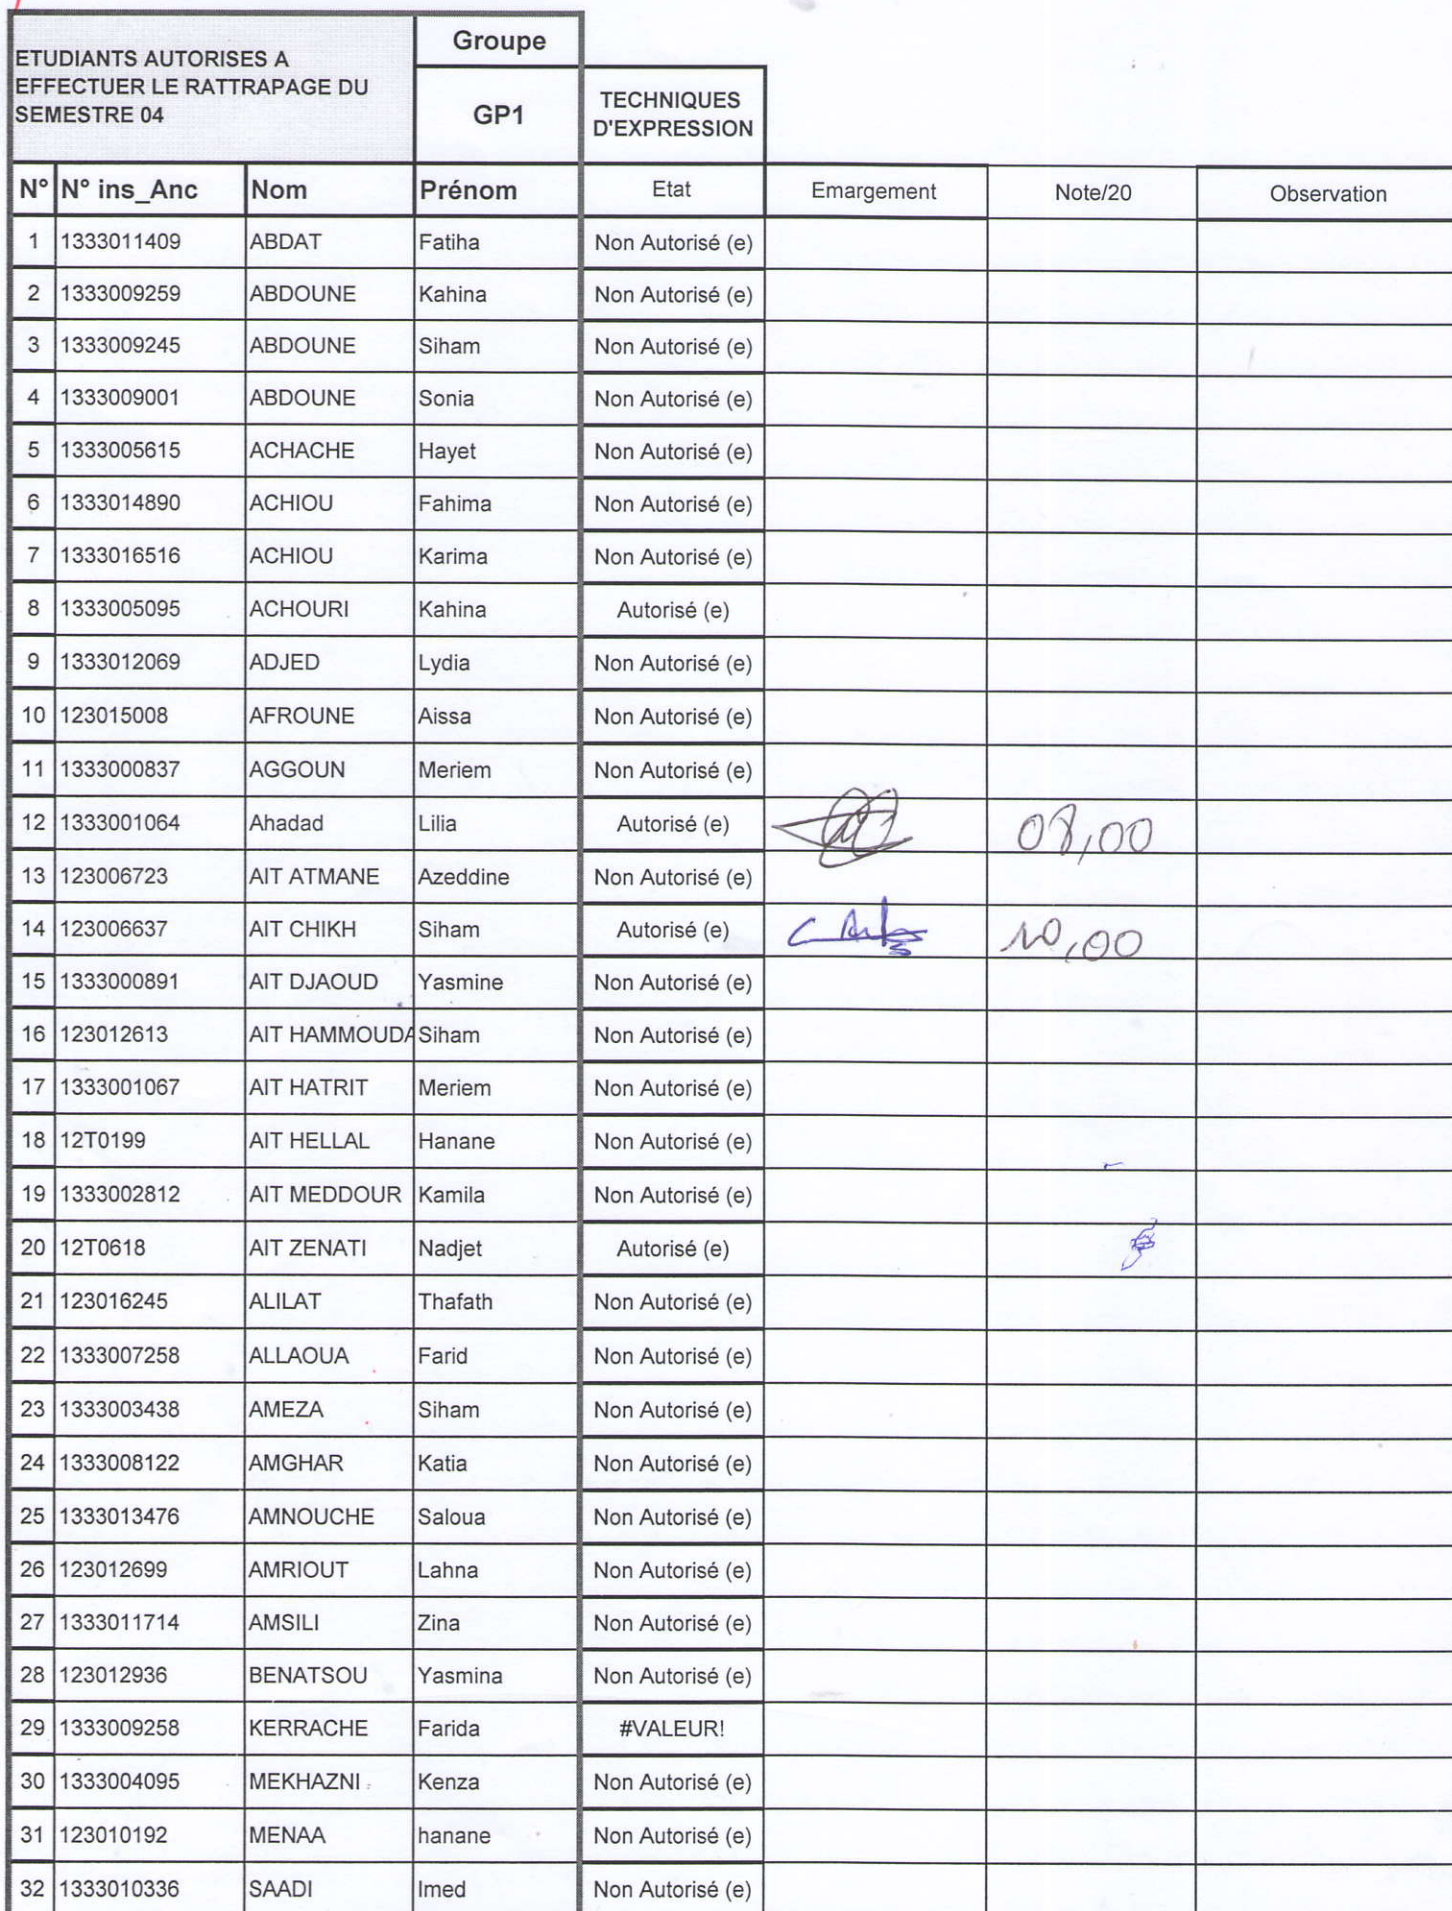 ETUDIANTS AUTORISES A
EFFECTUER LE RATTRAPAGE DU
SEMESTRE 04
Groupe
GP1
TECHNIQUES
D'EXPRESSION
N° N° ins_Anc Nom Prénom Etat Emargement Note/20 Observation
1 1333011409 ABDAT Fatiha Non Autorisé (e)
2 1333009259 ABDOUNE Kahina Non Autorisé (e)
3 1333009245 ABDOUNE Siham Non Autorisé (e)
4 1333009001 ABDOUNE Sonia Non Autorisé (e)
5 1333005615 ACHACHE Hayet Non Autorisé (e)
6 1333014890 ACHIOU Fahima Non Autorisé (e)
7 1333016516 ACHIOU Karima Non Autorisé (e)
8 1333005095 ACHOURI Kahina Autorisé (e)
9 1333012069 ADJED Lydia Non Autorisé (e)
10 123015008 AFROUNE Aissa Non Autorisé (e)
11 1333000837 AGGOUN Meriem Non Autorisé (e)
12 1333001064 Ahadad Lilia Autorisé (e) 08,00
13 123006723 AIT ATMANE Azeddine Non Autorisé (e)
14 123006637 AIT CHIKH Siham Autorisé (e) 10,00
15 1333000891 AIT DJAOUD Yasmine Non Autorisé (e)
16 123012613 AIT HAMMOUDA Siham Non Autorisé (e)
17 1333001067 AIT HATRIT Meriem Non Autorisé (e)
18 12T0199 AIT HELLAL Hanane Non Autorisé (e)
19 1333002812 AIT MEDDOUR Kamila Non Autorisé (e)
20 12T0618 AIT ZENATI Nadjet Autorisé (e)
21 123016245 ALILAT Thafath Non Autorisé (e)
22 1333007258 ALLAOUA Farid Non Autorisé (e)
23 1333003438 AMEZA Siham Non Autorisé (e)
24 1333008122 AMGHAR Katia Non Autorisé (e)
25 1333013476 AMNOUCHE Saloua Non Autorisé (e)
26 123012699 AMRIOUT Lahna Non Autorisé (e)
27 1333011714 AMSILI Zina Non Autorisé (e)
28 123012936 BENATSOU Yasmina Non Autorisé (e)
29 1333009258 KERRACHE Farida #VALEUR!
30 1333004095 MEKHAZNI Kenza Non Autorisé (e)
31 123010192 MENAA hanane Non Autorisé (e)
32 1333010336 SAADI Imed Non Autorisé (e)